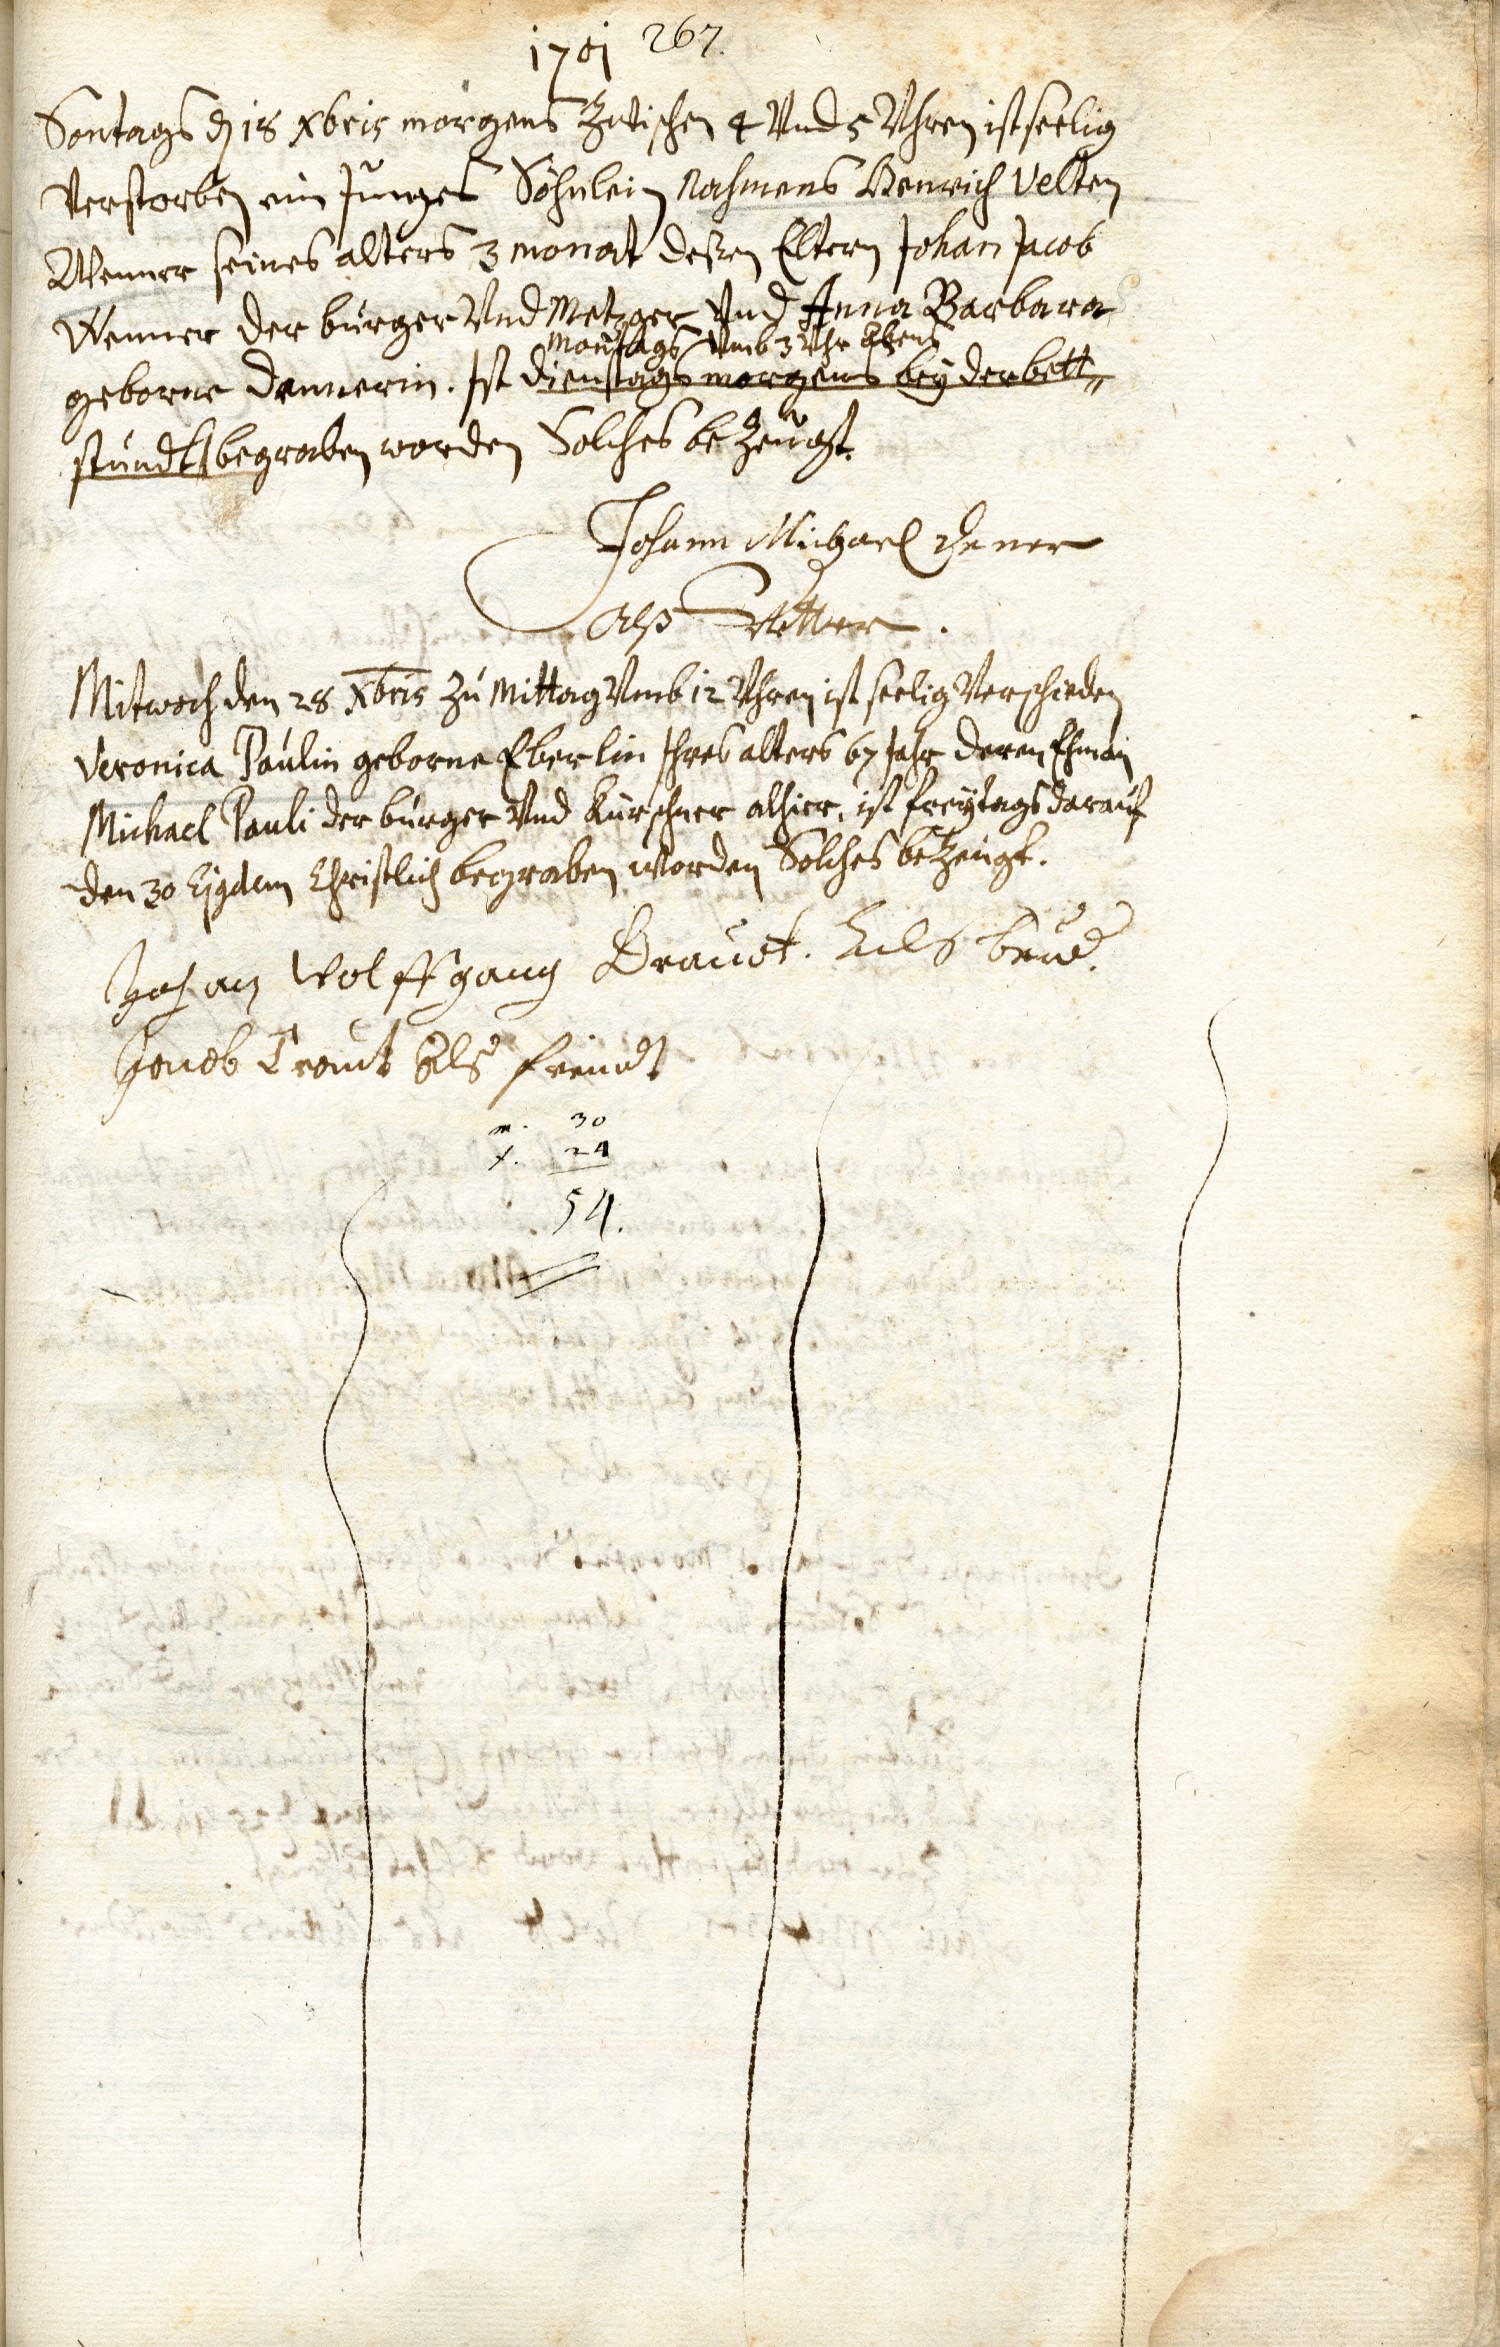 1701 267.
Sontags d 18 Xbris morgens Zwischen 4 Vnd 5 Vhren ist seelig
Verstorben ein Junges Söhnlein Nahmens Henrich Velten
Wenner seines alters 3 monat deßen Eltern Johan Jacob
Wenner der bürger Vnd Metzger Vnd Anna Barbara
Montags Vmb 3 Vhr
geborne Dennerin. Ist dienstags morgens bey der bett„
stündt begraben worden Solches beZeugt.
Johann Michael
alß Vetter.
Mitwoch den 28 Xbris Zu Mittag Vmb 12 Vhren ist seelig Verschieden
Veronica Paulin geborne Eberlin Ihres alters 67 Jahr deren Ehman
Michael Pauli der bürger Vnd Kürschner alhier, ist freytags darauf
den 30 Ejgdem Christlich begraben worden Solches beZeugt.
Johan Wolffgang Braudt. Als
Jacob Traut Als freindt
m. 30
f. 24
54.